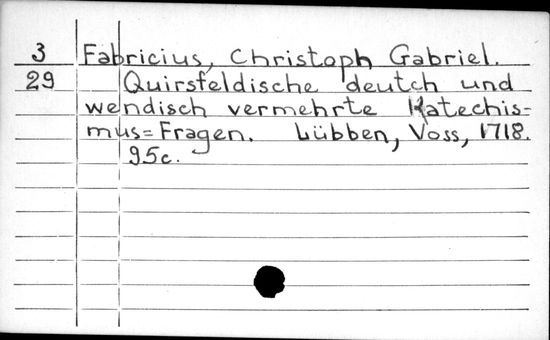 3 Fabricius, Christoph Gabriel.
29 Quirsfeldische deutch und
wendisch vermehrte Katechis=
mus=Fragen. Lübben, Voss, 1718.
95c.